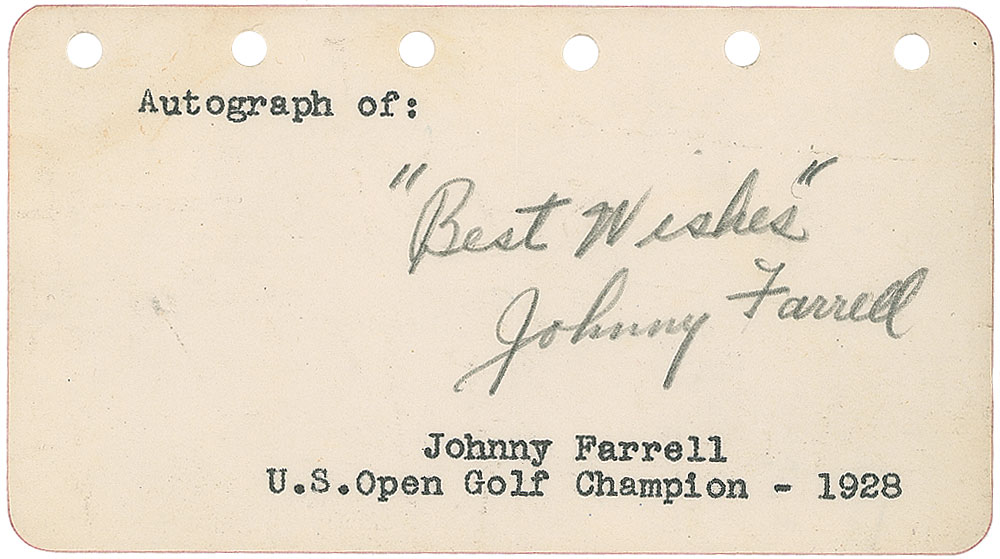 Autograph of:
"Best Wishes"
Johnny Farrell
Johnny Farrell
U.S.Open Golf Champion - 1928